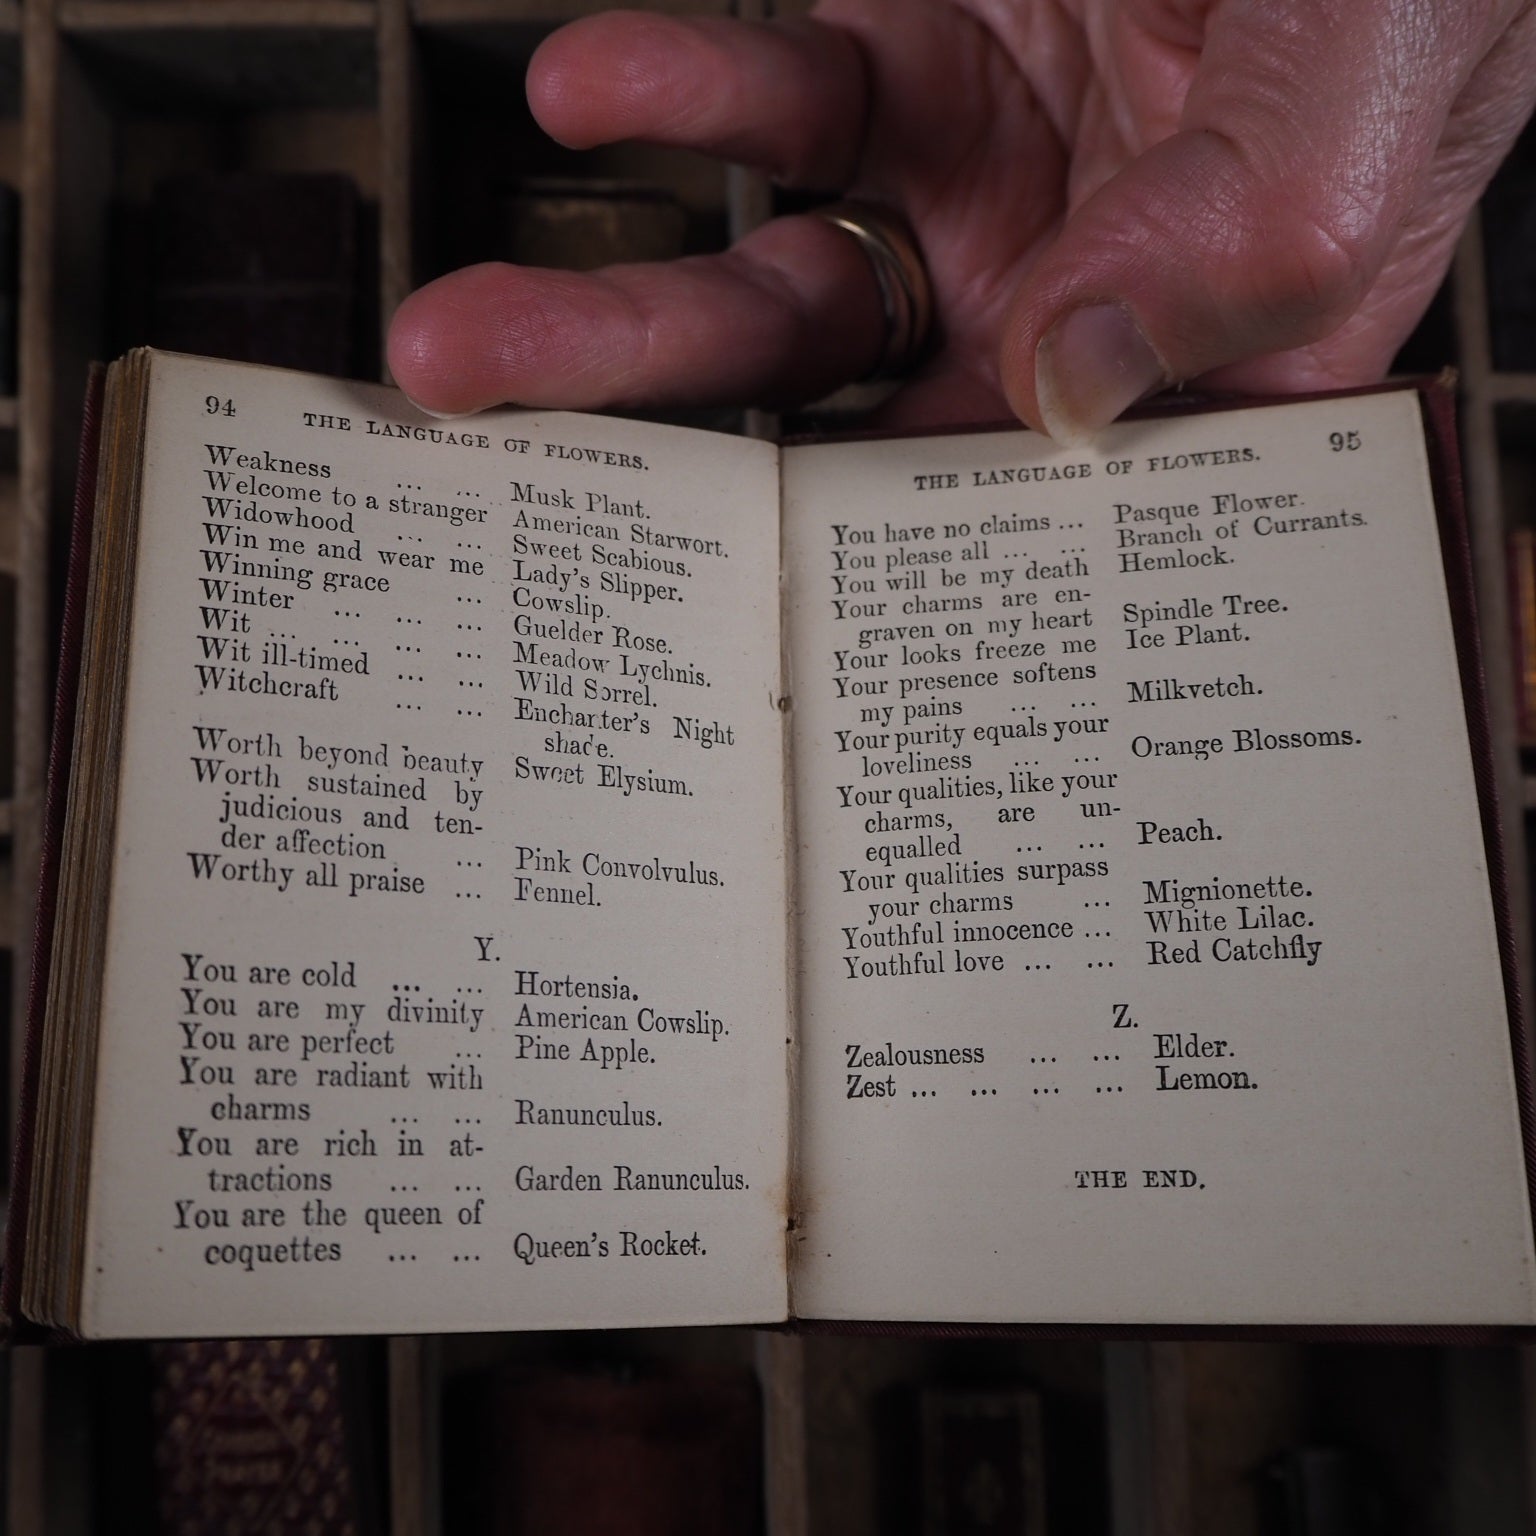 94 THE LANGUAGE OF FLOWERS.
Weakness ... ... Musk Plant.
Welcome to a stranger American Starwort.
Widowhood ... ... Sweet Scabious.
Win me and wear me Lady's Slipper.
Winning grace ... Cowslip.
Winter ... ... ... Guelder Rose.
Wit ... ... ... ... Meadow Lychnis.
Wit ill-timed ... ... Wild Sorrel.
Witchcraft ... ... Enchanter's Night
shade.
Worth beyond beauty Sweet Elysium.
Worth sustained by
judicious and ten-
der affection ... Pink Convolvulus.
Worthy all praise ... Fennel.
Y.
You are cold ... ... Hortensia.
You are my divinity American Cowslip.
You are perfect ... Pine Apple.
You are radiant with
charms ... ... Ranunculus.
You are rich in at-
tractions ... ... Garden Ranunculus.
You are the queen of
coquettes ... ... Queen's Rocket.
THE LANGUAGE OF FLOWERS. 95
You have no claims ... Pasque Flower.
You please all ... ... Branch of Currants.
You will be my death Hemlock.
Your charms are en-
graven on my heart Spindle Tree.
Your looks freeze me Ice Plant.
Your presence softens
my pains ... ... Milkvetch.
Your purity equals your
loveliness ... ... Orange Blossoms.
Your qualities, like your
charms, are un-
equalled ... ... Peach.
Your qualities surpass
your charms ... Mignionette.
Youthful innocence ... White Lilac.
Youthful love ... ... Red Catchfly
Z.
Zealousness ... ... Elder.
Zest ... ... ... ... Lemon.
THE END.